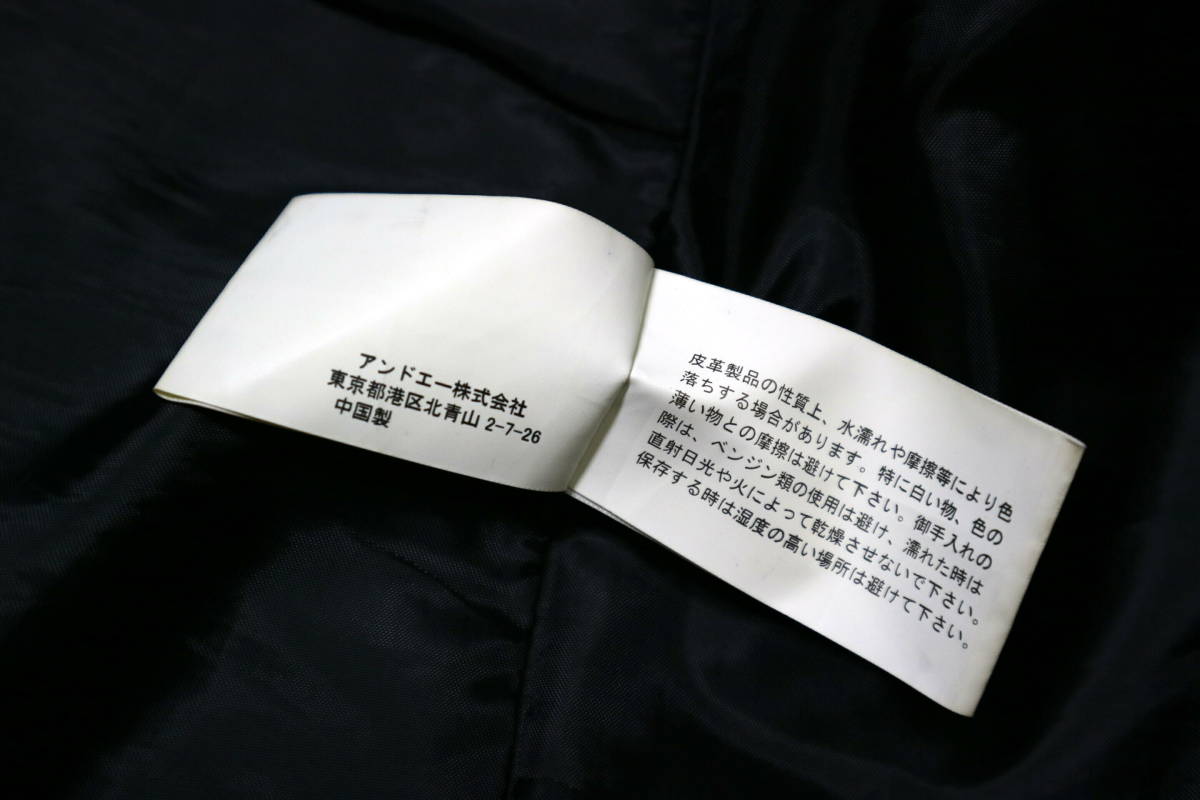 アンドエー株式会社
東京都港区北青山 2-7-26
中国製
皮革製品の性質上、水濡れや摩擦等により色
落ちする場合があります。特に白い物、色の
薄い物との摩擦は避けて下さい。御手入れの
際は、ベンジン類の使用は避け、濡れた時は
直射日光や火によって乾燥させないで下さい。
保存する時は湿度の高い場所は避けて下さい。